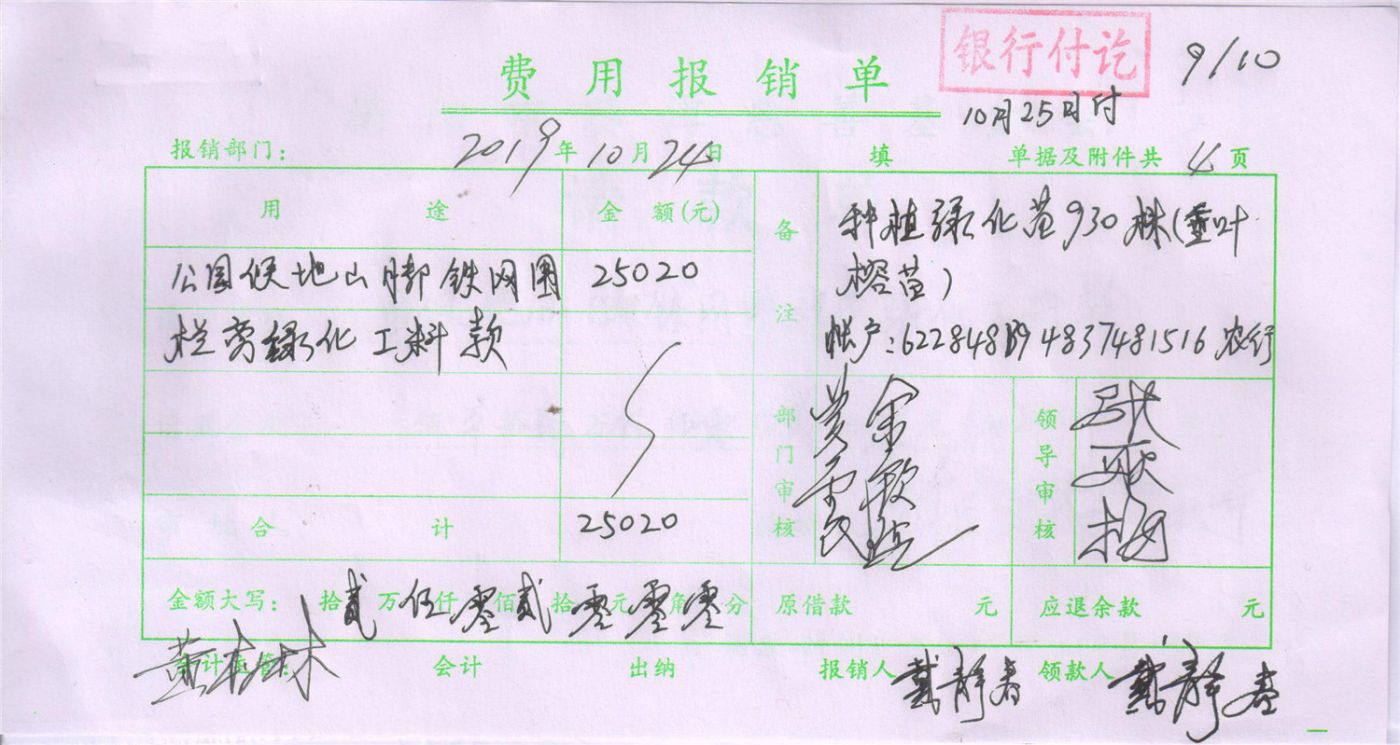 银行付讫
9/10
费用报销单
10月25日付
报销部门: 2019年10月24日 填 单据及附件共 4 页
用途 金额(元) 备注 种植绿化苗930株(垂叶
公园候地山脚铁网围 25020 榕苗)
栏旁绿化工料款 帐户:622848194837481516农行
部门审核 领导审核
合计 25020
金额大写: 拾贰万伍仟零佰贰拾零元零角零分 原借款 元 应退余款 元
会计 出纳 报销人 戴静春 领款人 戴静春